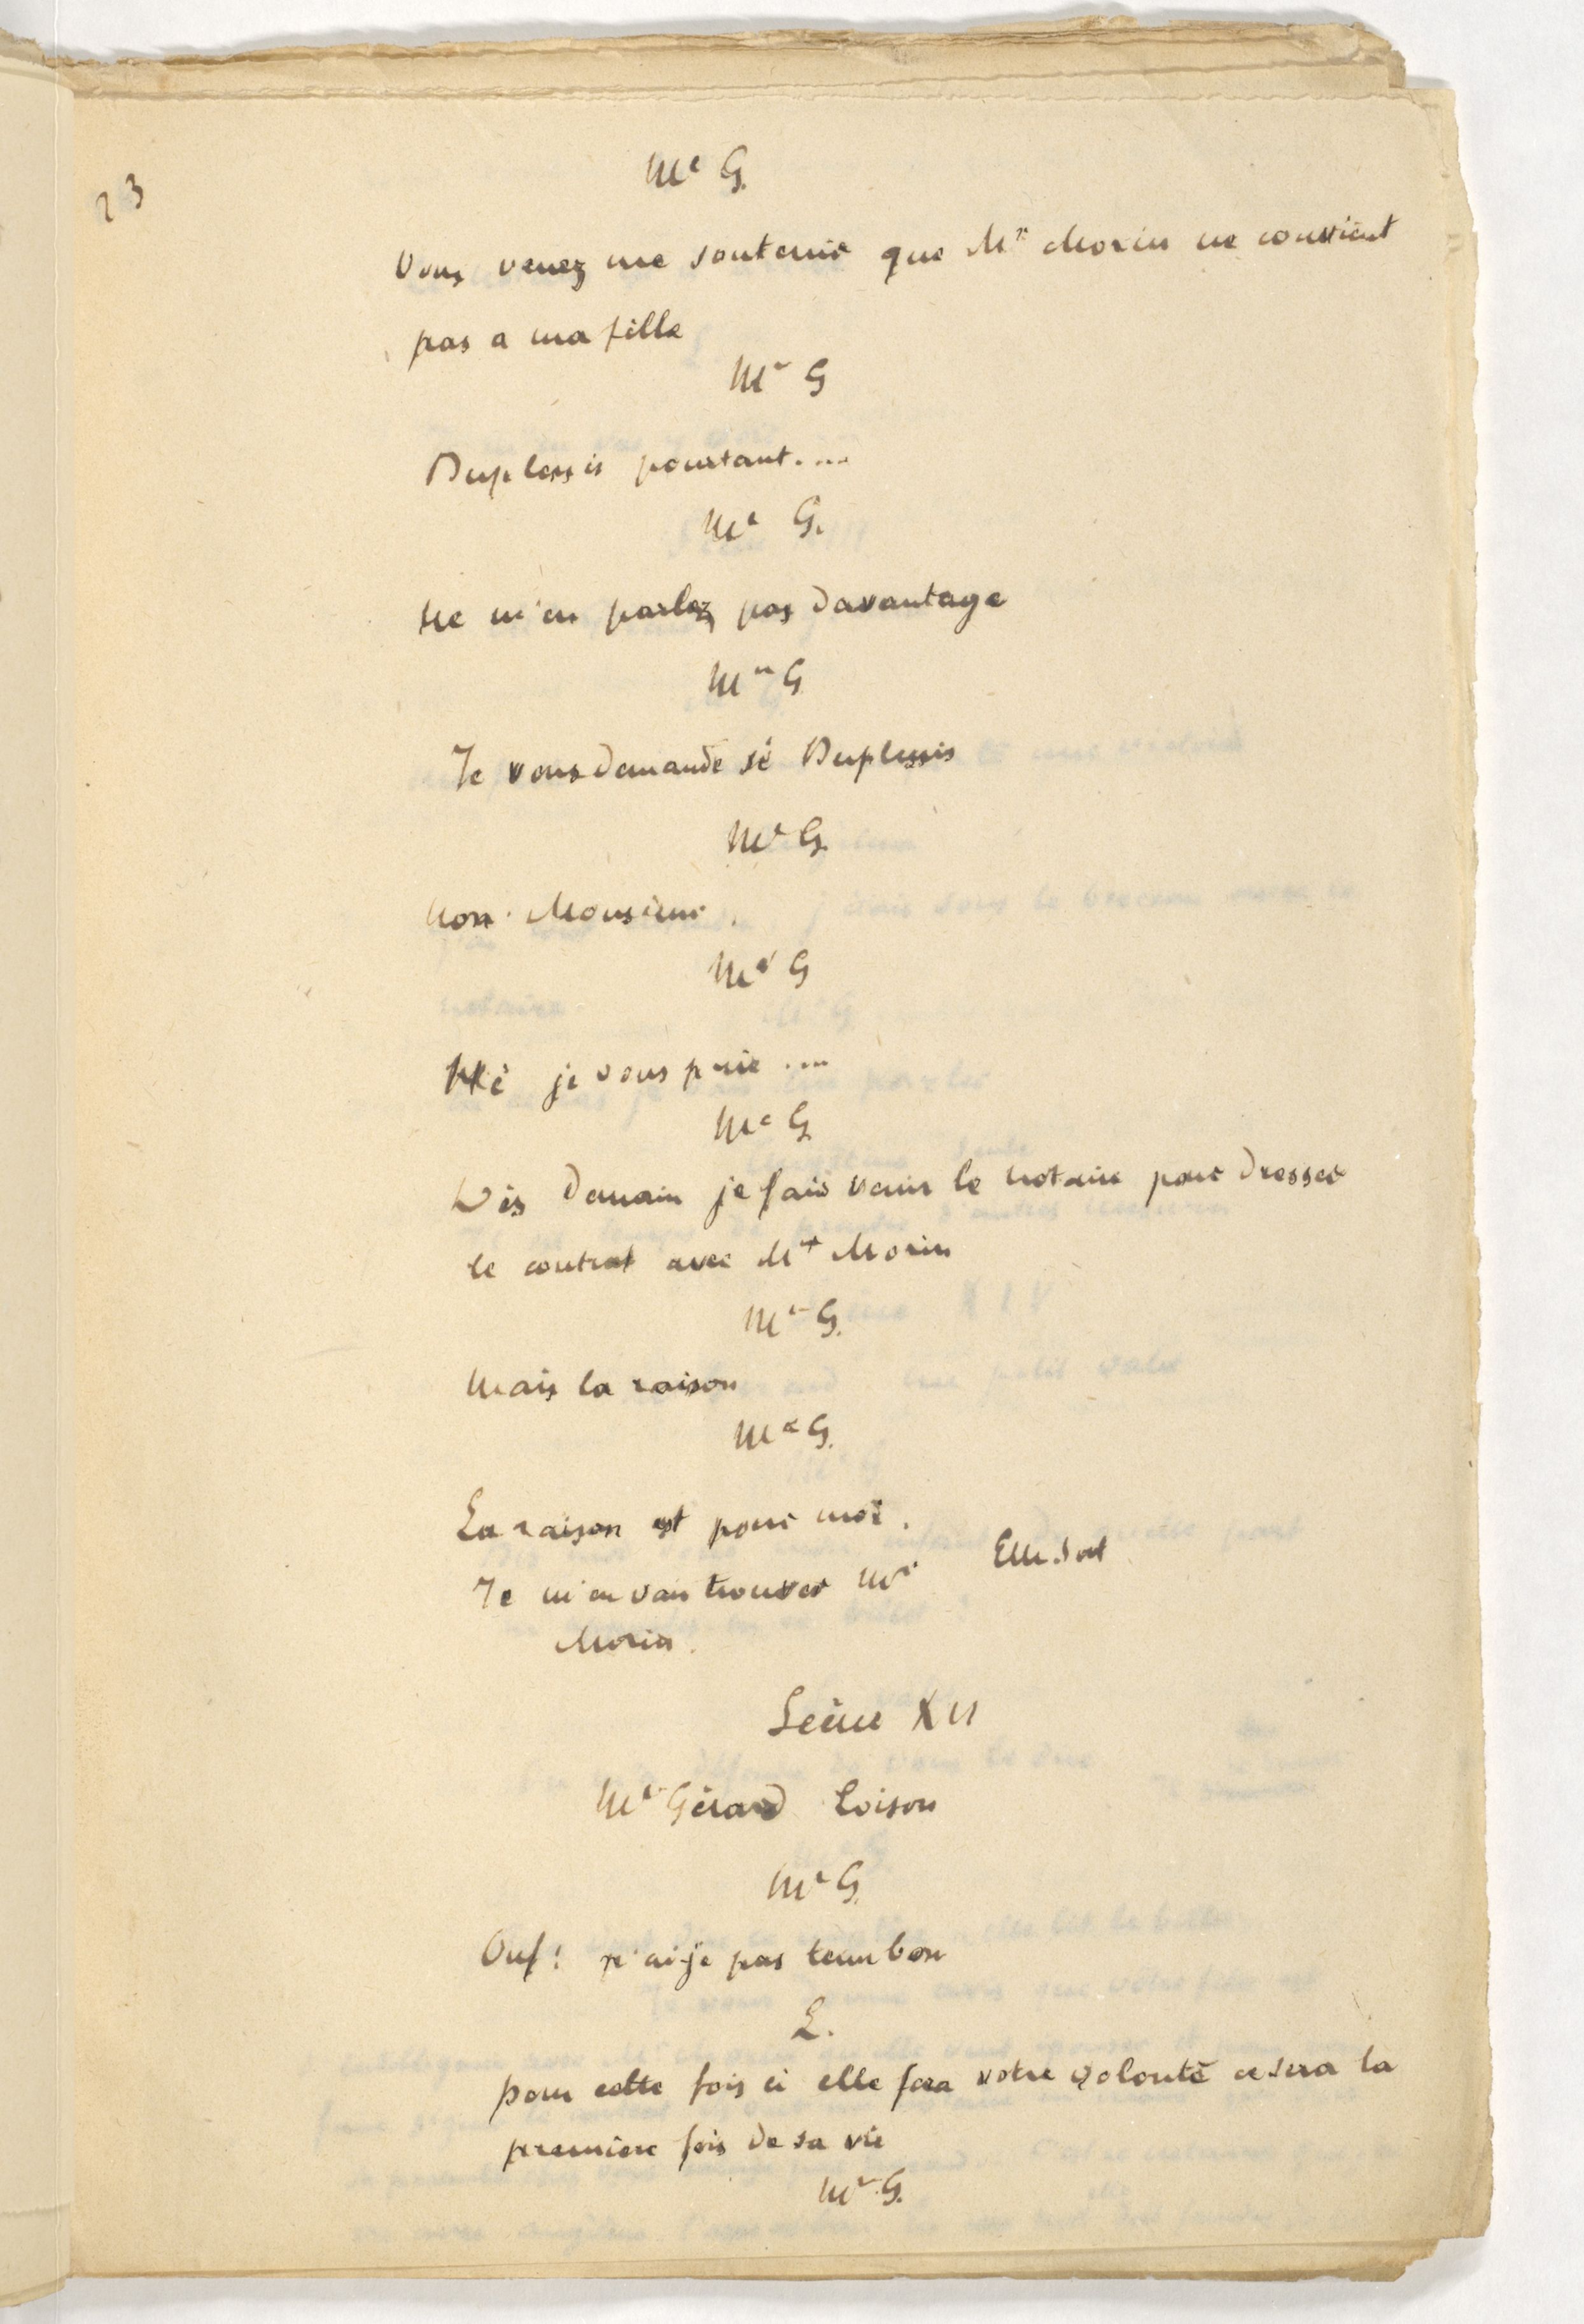 23
Me G.
Vous venez me soutenir que Mr Morin ne convient
pas a ma fille
Mr G
Duplessis pourtant....
Me G.
Ne m'en parlez pas davantage
Mr G
Je vous demande si Duplessis
Me G.
Non. Monsieur.
Mr G
je vous prie ....
Me G
Dès demain je fais venir le notaire pour dresser
le contrat avec Mr Morin
Mr G.
Mais la raison
Me G.
La raison est pour moi.
Je m'en vais trouver Mr Elle sort
Morin.
Scène XII
Mr Gérard Loison
Mr G.
Ouf! n'ai-je pas tenu bon
L.
pour cette fois ci elle fera votre volonté ce sera la
première fois de sa vie
Mr G.